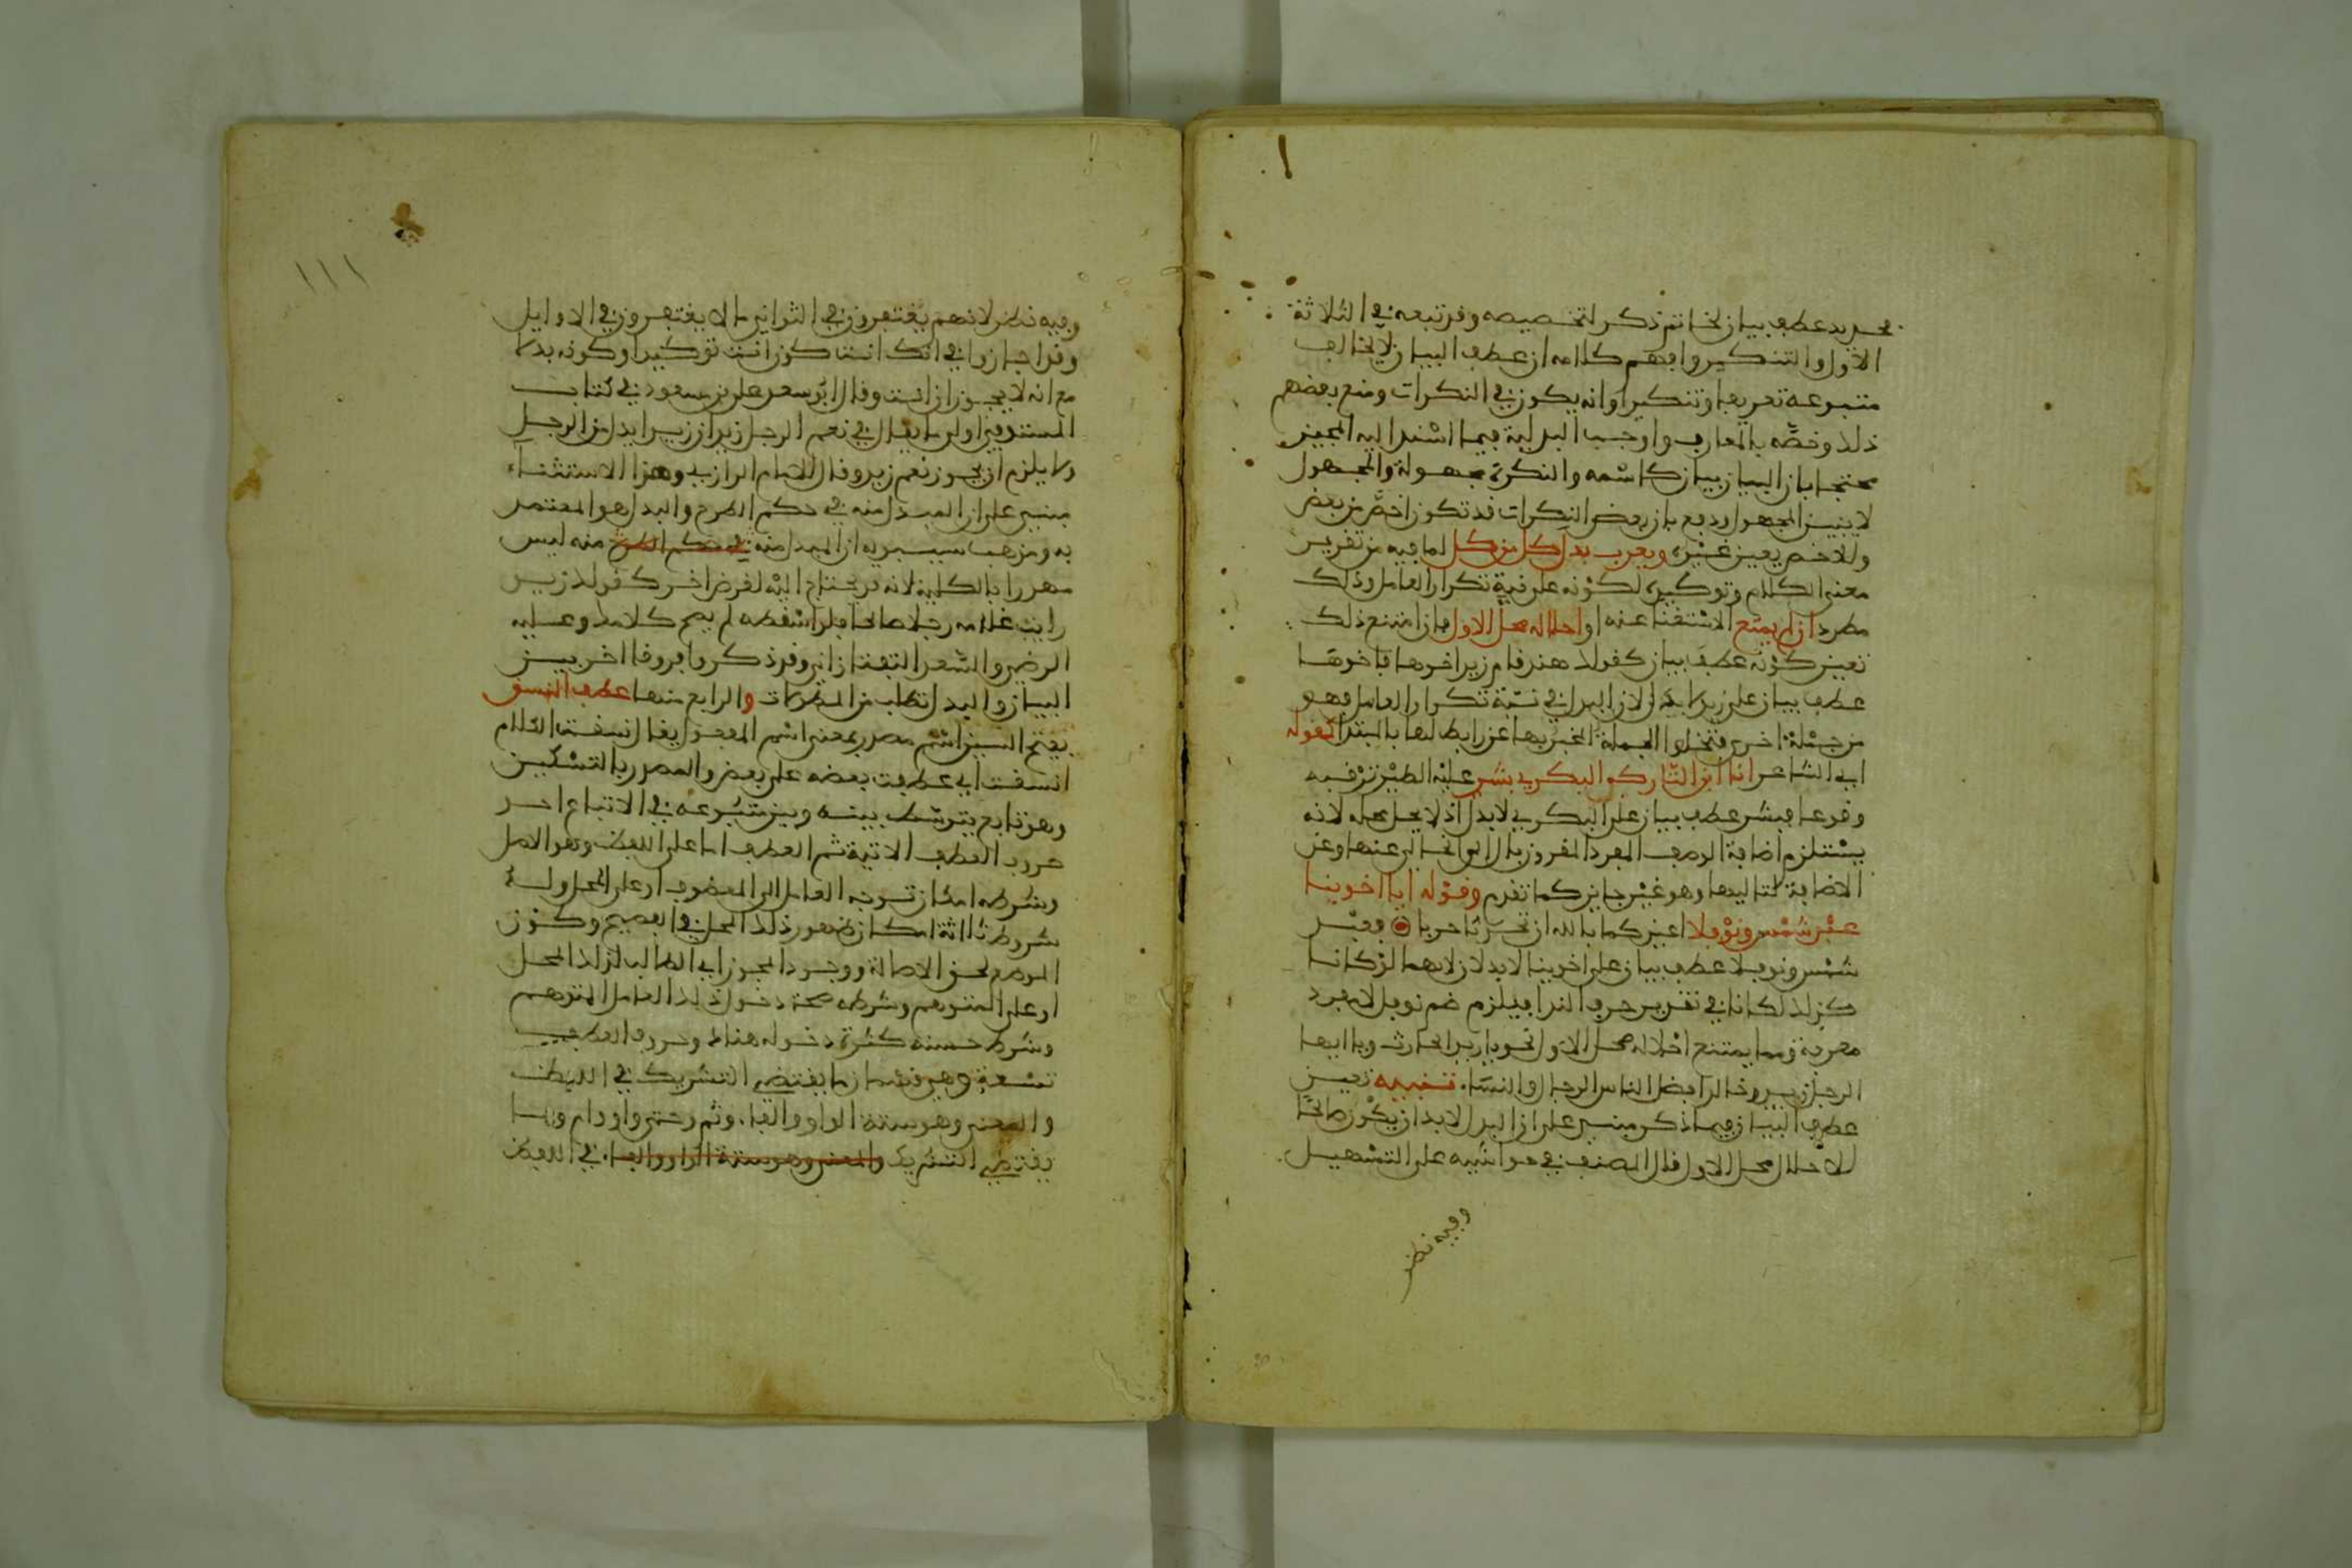 فحديد عطف بيان لخاتم ذكر لتخصيصه وقد تبعه في الثلاثة
الأول والتنكير وافهم كلامه ان عطف البيان لا يخالف
متبوعه تعريفا وتنكيرا وانه يكون في النكرات ومنع بعضهم
ذلك وخصّه بالمعارف واوجب البدلية فيما استند اليه المجيز
محتجا بان البيان بيان كاسمه والنكرة مجهولة والمجهول
لا يبين المجهول ودفع بان بعض النكرات قد تكون اخصّ من بعض
والاخص يعين غيره ويعرب بدل كل من كل لما فيه من تقرير
معنى الكلام وتوكيده لكونه على نية تكرار العامل وذلك
مطرد ان لم يمتنع الاستغناء عنه او احلاله محل الاول فان امتنع ذلك
تعين كونه عطف بيان كقولك هند قام زيد اخوها فاخوها
عطف بيان على زيد لا بدل لان البدل في نية تكرار العامل فهو
من جملة اخرى فتخلوا الجملة المخبر بها عن رابط لها بالمبتدا كقوله
اي الشاعر انا ابن التارك البكري بشر عليه الطير ترقبه
وقوعا فبشر عطف بيان على البكري لا بدل اذ لا يحل محله لانه
يستلزم اضافة الوصف المفرد المقرون بال الى الخالي عنها وعن
الاضافة لتاليها وهو غير جايز كما تقدم وقوله ايا اخوينا
عبد شمس ونوفلا اعيذكما بالله ان تحدثا حربا فعبد
شمس ونوفلا عطف بيان على اخوينا لا بدلان لانهما لو كانا
كذلك لكانا في تقدير حرف الندا فيلزم ضم نوفل لانه مفرد
معرفة ومما يمتنع احلاله محل الاول نحو يا زيد الحارث ويا ايها
الرجل زيد وخالد افضل الناس الرجال والنسا. تنبيه تعين
عطف البيان فيما ذكر مبني على ان البدل لا بد ان يكون صالحا
لاحلال محل الاول قال المصنف في حواشيه على التسهيل
وفيه نظر
١١١
وفيه نظر لانهم يغتفرون في الثواني ما لا يغتفرون في الاوايل
وقد اجازوا في انك انت كون انت توكيدا وكونه بدلا
مع انه لا يجوز ان انت وقال ابو سعد علي بن مسعود في كتاب
المستوفى اولى ما يقال في نعم الرجل زيد ان زيدا بدل من الرجل
ولا يلزم ان يجوز نعم زيد وقال الامام الرازي وهذا الاستثناء
مبني على ان المبدل منه في حكم الطرح والبدل هو المعتمد
به ومذهب سيبويه ان المبدل منه في حكم الطرح منه ليس
مهدرا بالكلية لانه قد يحتاج اليه لغرض اخر كقولك زيد
رايت غلامه رجلا صالحا فلو اسقطه لم يصح كلامك وعليه
الرضي والسعد التفتازاني وقد ذكروا فروقا اخر بين
البيان والبدل تطلب من المطولات والرابع منها عطف النسق
بفتح السين اسم مصدر بمعنى اسم المفعول يقال نسقت الكلام
انسقه اي عطفت بعضه على بعض والمصدر بالتسكين
وهو تابع يتوسّط بينه وبين متبوعه في الاتباع احد
حروف العطف الاتية ثم العطف اما على اللفظ وهو الاصل
وشرطه امكان توجه العامل الى المعطوف او على المحل وله
شروط ثلاثة امكان ظهور ذلك المحل في الفصيح وكون
الموضع لحق الاصالة ووجود المجوز اي الطالب لذلك المحل
او على التوهم وشرطه صحة دخول ذلك العامل المتوهم
وشرط حسنه كثرة دخوله هناك وحروف العطف
تسعة وهي قسمان ما يقتضي التشريك في اللفظ
والمعنى وهو ستة الواو والفا. وثم وحتى واو وام وما
يقتضي التشريك والمعنى وهو ستة الواو والفا. في اللفظ